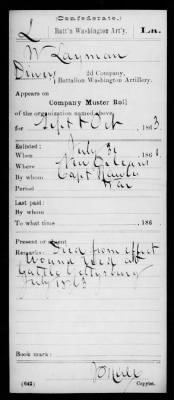 (Confederate.)
L Batt'n Washington Art'y. La.
W Layman
Driver, 2d Company,
Battalion Washington Artillery.
Appears on
Company Muster Roll
of the organization named above,
for Sept & Oct, 1863.
Enlisted:
When July 31, 1861.
Where New Orleans
By whom Capt
Period War
Last paid:
By whom
To what time , 186 .
Present or absent
Remarks: Died from effect
wound recd at
battle Gettysburg
July 1863
Book mark:
(642)
Copyist.